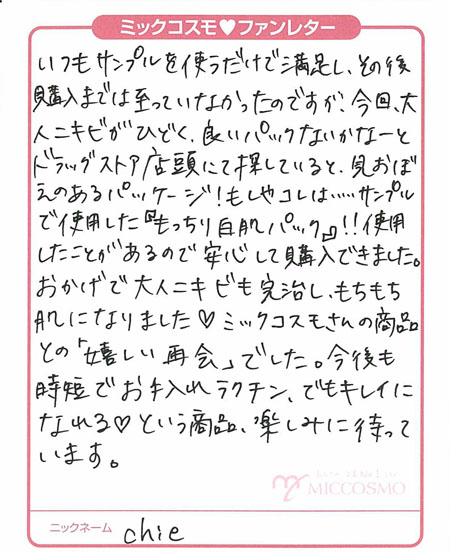 ミックコスモ♥ファンレター
いつもサンプルを使うだけで満足し、その後
購入までは至っていなかったのですが、今回、大
人ニキビがひどく、良いパックないかなーと
ドラッグストア店頭にて探していると、見おぼ
えのあるパッケージ！もしやコレは……サンプル
で使用した『もっちり白肌パック』!!使用
したことがあるので安心して購入できました。
おかげで大人ニキビも完治し、もちもち
肌になりました♡ミックコスモさんの商品
との「嬉しい再会」でした。今後も
時短でお手入れラクチン、でもキレイに
なれる♡という商品、楽しみに待って
います。
MICCOSMO
ニックネーム chie